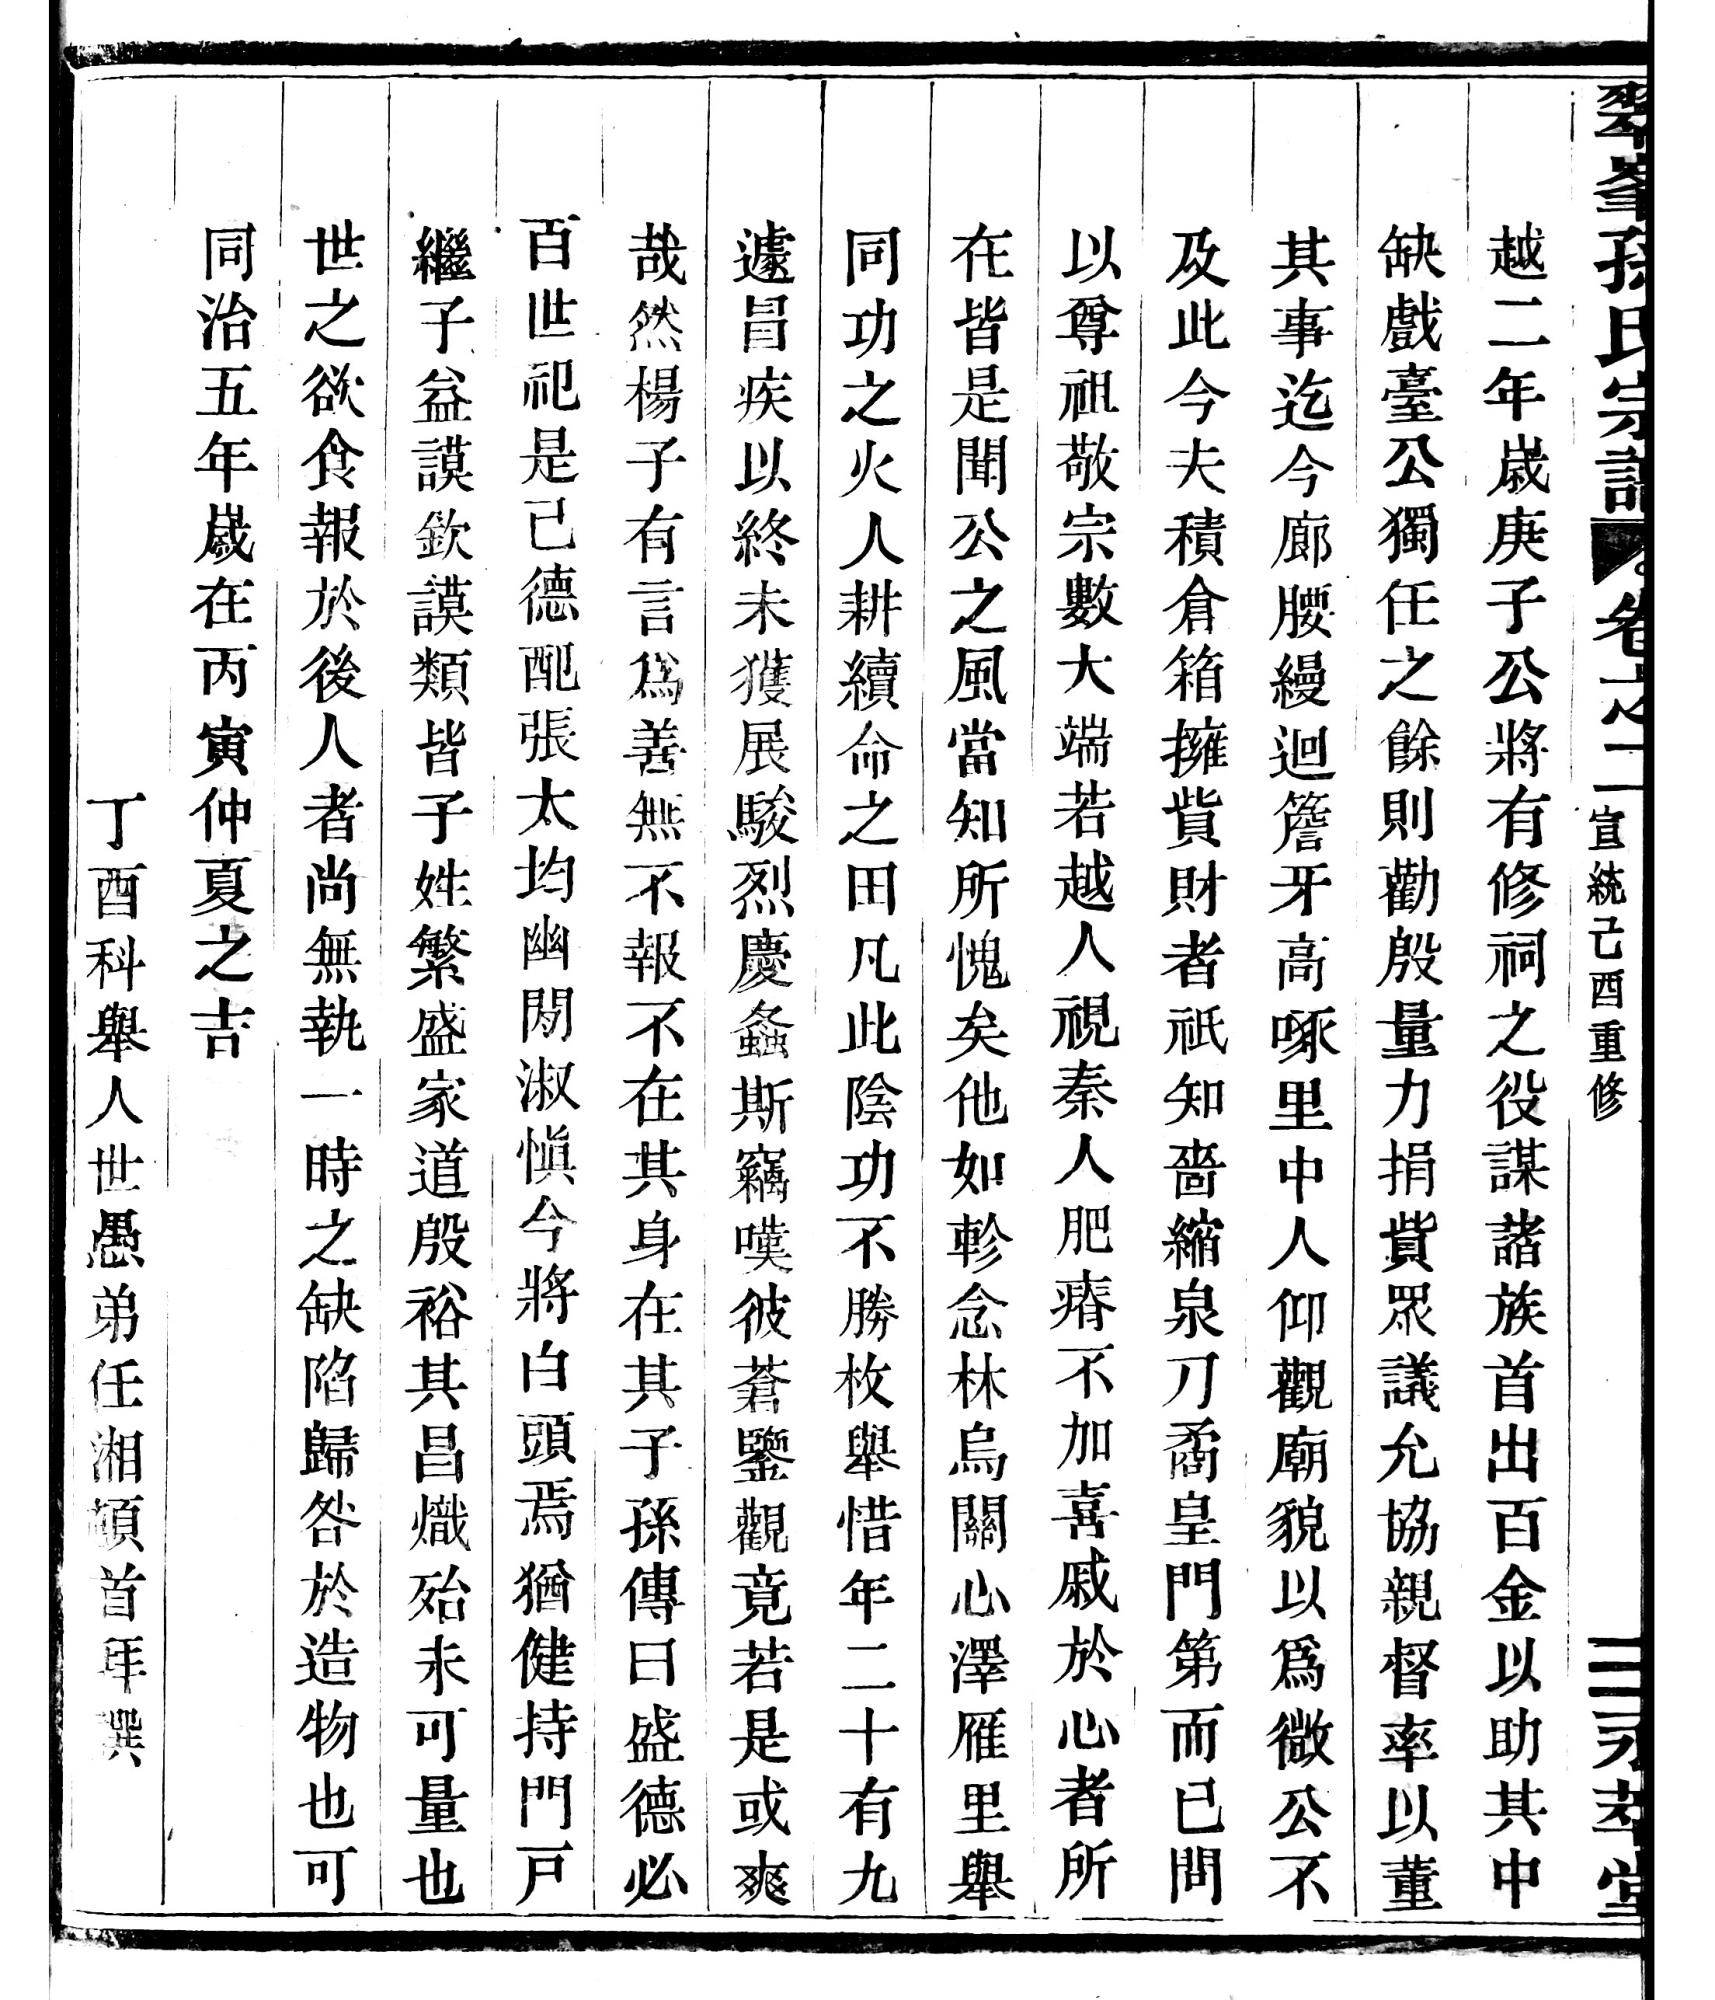 翠峯孫氏宗譜 卷之二 宣統己酉重修 三 永萃堂
越二年歲庚子公將有修祠之役謀諸族首出百金以助其中
缺戲臺公獨任之餘則勸殷量力捐貲眾議允協親督率以董
其事迄今廊腰縵迴簷牙高啄里中人仰觀廟貌以爲微公不
及此今夫積倉箱擁貲財者祇知嗇縮泉刀矞皇門第而已問
以尊祖敬宗數大端若越人視秦人肥瘠不加喜戚於心者所
在皆是聞公之風當知所愧矣他如軫念林烏關心澤雁里舉
同功之火人耕續命之田凡此陰功不勝枚舉惜年二十有九
遽昌疾以終未獲展駿烈慶螽斯竊嘆彼蒼鑒觀竟若是或爽
哉然楊子有言爲善無不報不在其身在其子孫傳曰盛德必
百世祀是已德配張太均幽閒淑慎今將白頭焉猶健持門戸
繼子益謨欽謨類皆子姓繁盛家道殷裕其昌熾殆未可量也
世之欲食報於後人者尚無執一時之缺陷歸咎於造物也可
同治五年歲在丙寅仲夏之吉
丁酉科舉人世愚弟任湘頓首拜撰